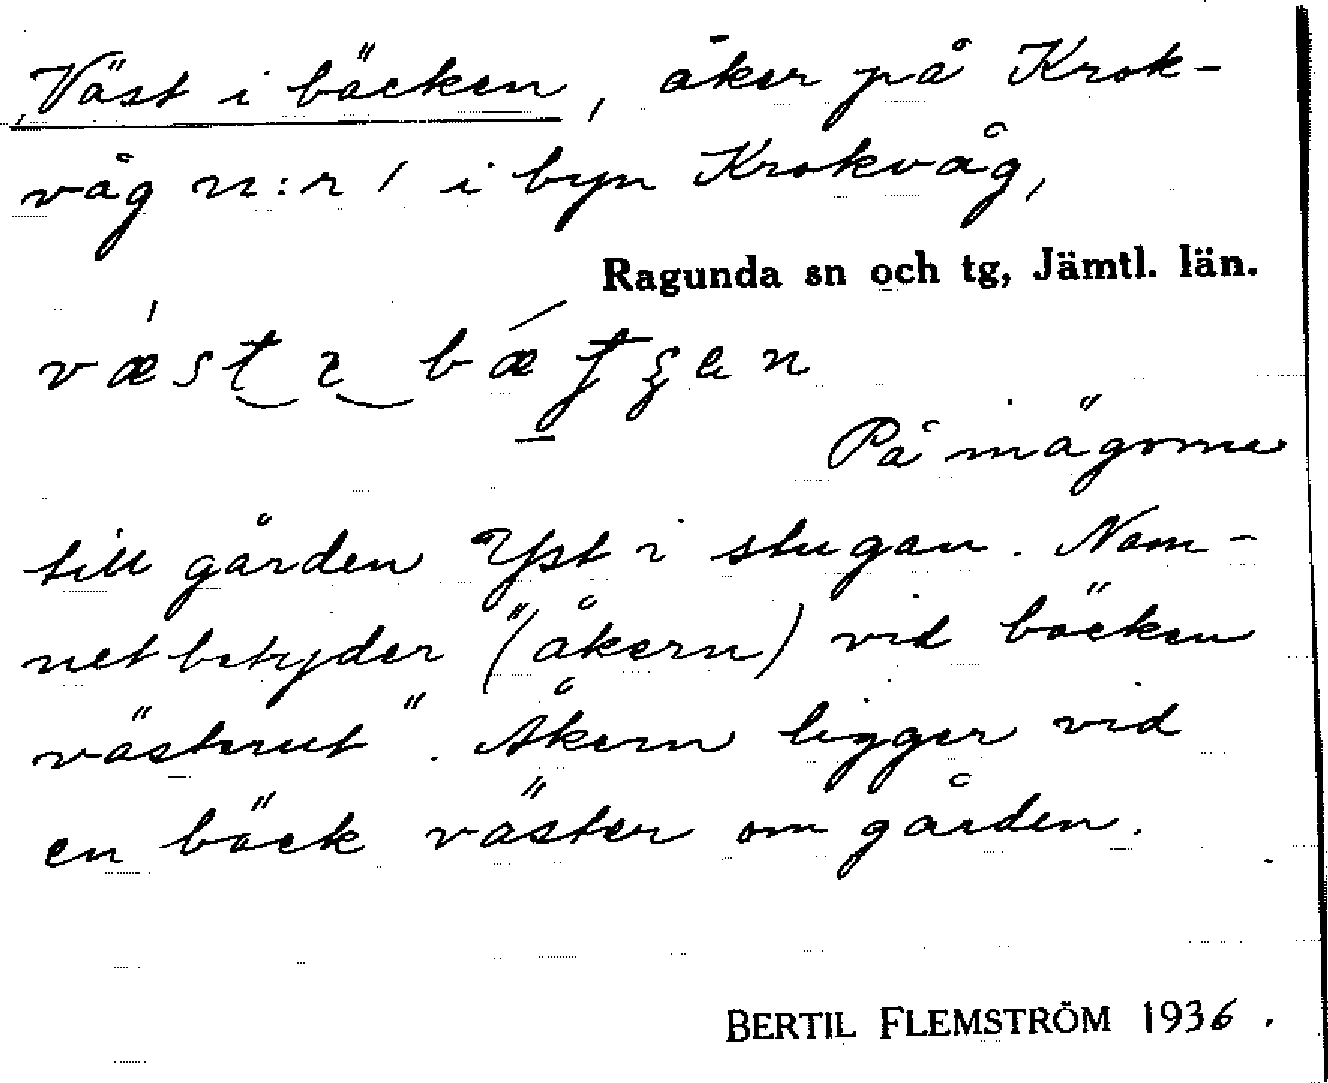 Väst i bäcken, åker på Krok-
våg n:r 1 i byn Krokvåg,
Ragunda sn och tg, Jämtl. län.
På mägorna
till gården Yst i stugan. Nam-
net betyder "(åkern) vid bäcken
västerut". Åkern ligger vid
en bäck väster om gården.
BERTIL FLEMSTRÖM 1936.